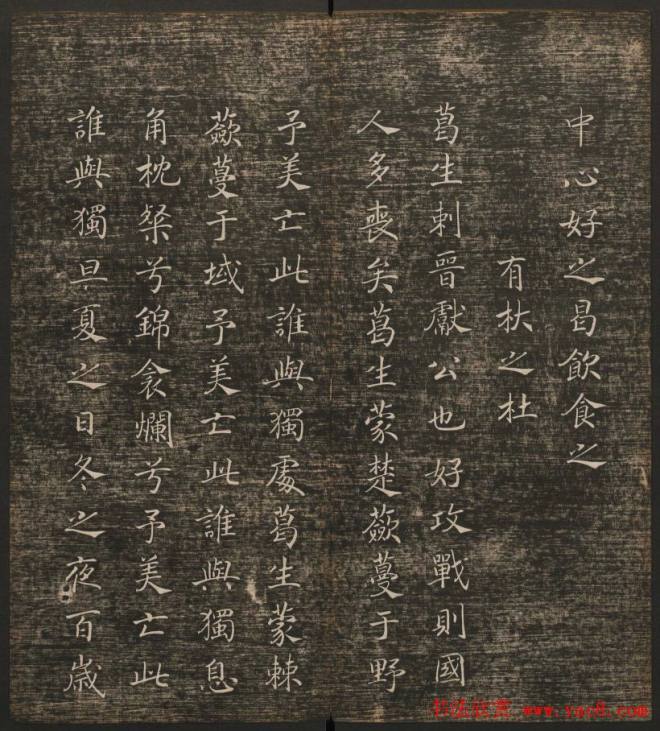 中心好之曷飲食之
有杕之杜
葛生刺晉獻公也好攻戰則國
人多喪矣葛生蒙楚蘞蔓于野
予美亡此誰與獨處葛生蒙棘
蘞蔓于域予美亡此誰與獨息
角枕粲兮錦衾爛兮予美亡此
誰與獨旦夏之日冬之夜百歲
书法欣赏 www.yac8.com